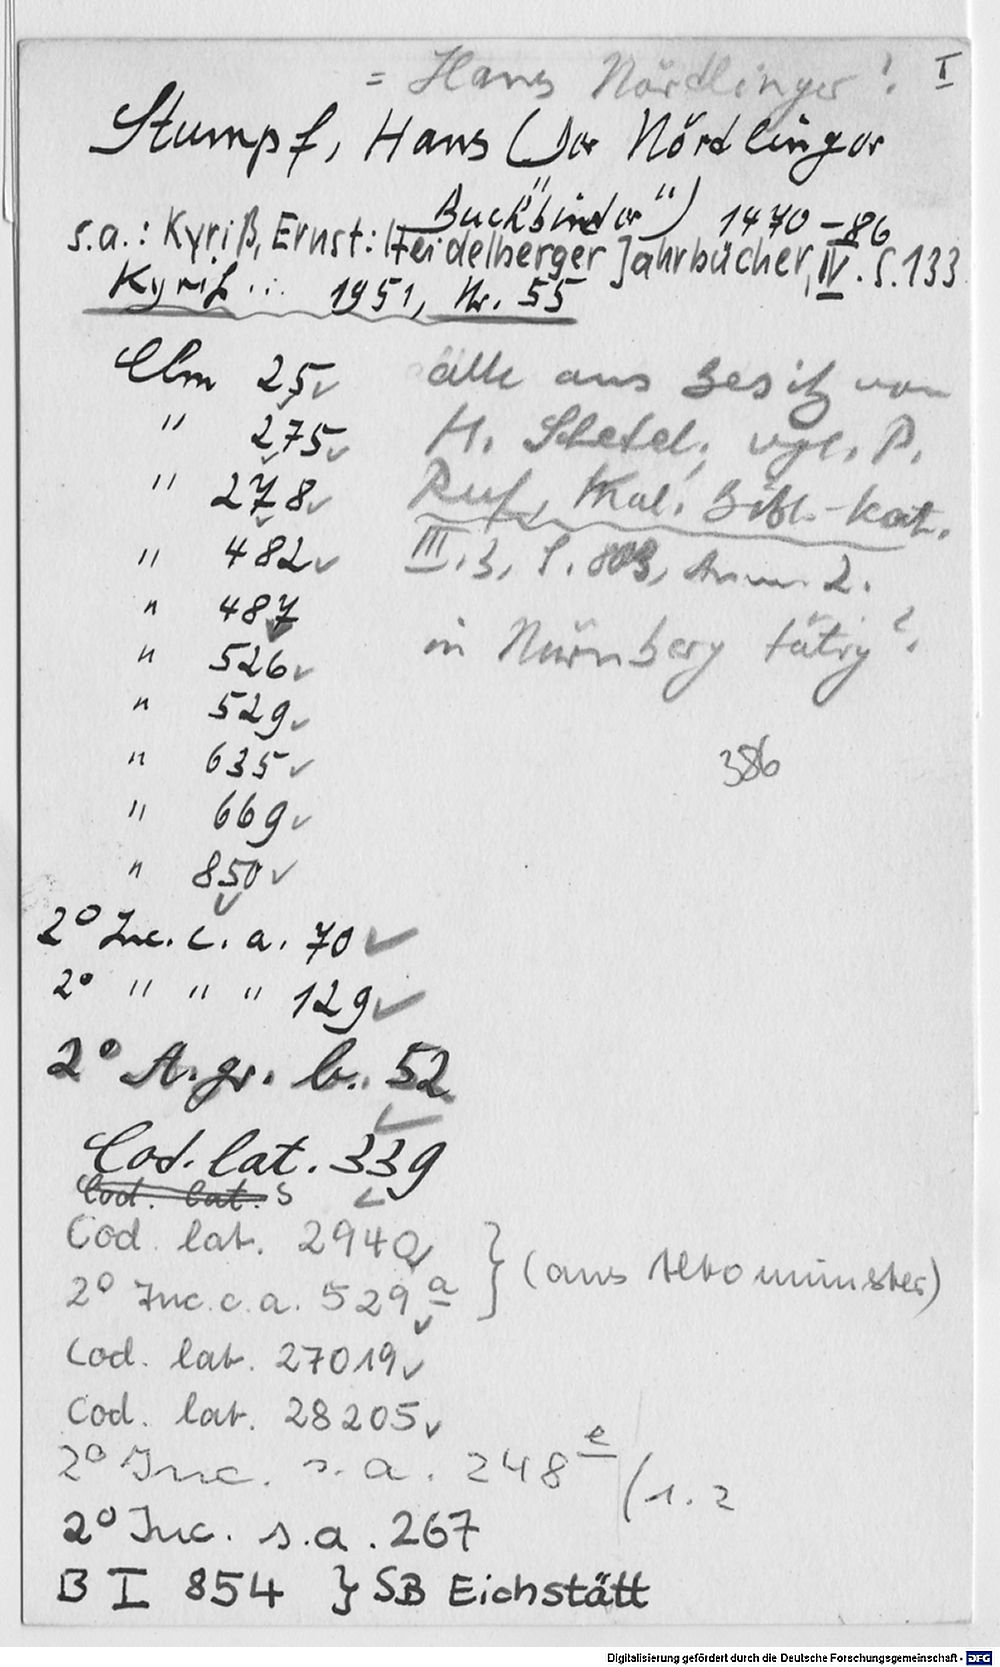 = Hans Nördlinger! I
Stumpf, Hans (Der Nördlinger
Buchbinder") 1470-86
s.a.: Kyriß, Ernst: Heidelberger Jahrbücher, IV. S. 133
Kyriß ... 1951, Nr. 55
Clm 25 ✓ alle aus Besitz von
" 275 ✓ H. Schedel, vgl. P.
" 278 ✓ Ruf, Mal. Bibl.-kat.
" 482 ✓ III.3, S. 803, Anm. 2.
" 487 ✓ in Nürnberg tätig?
" 526 ✓
" 529 ✓
" 635 ✓
386
" 669 ✓
" 850 ✓
2° Inc. c. a. 70 ✓
2° " " " 129 ✓
2° A. gr. b. 52 ✓
Cod. lat. 339 ✓
Cod. lat. S
Cod. lat. 2940 ✓ } (aus Altomünster)
2° Inc. c. a. 529 a ✓
Cod. lat. 27019 ✓
Cod. lat. 28205 ✓
2° Inc. s. a. 248 e /1. 2
2° Inc. s. a. 267
B I 854 } SB Eichstätt
Digitalisierung gefördert durch die Deutsche Forschungsgemeinschaft - DFG